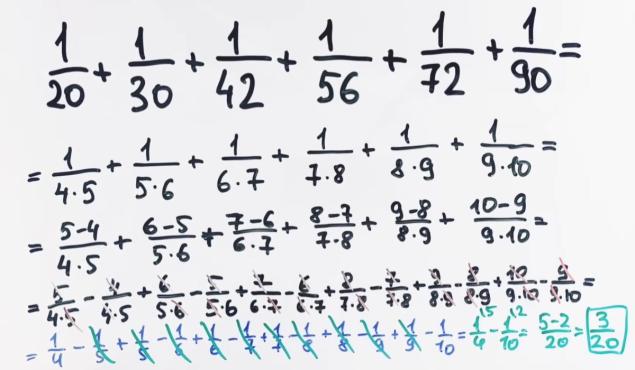 1/20 + 1/30 + 1/42 + 1/56 + 1/72 + 1/90 =
= 1/4·5 + 1/5·6 + 1/6·7 + 1/7·8 + 1/8·9 + 1/9·10 =
= 5-4/4·5 + 6-5/5·6 + 7-6/6·7 + 8-7/7·8 + 9-8/8·9 + 10-9/9·10 =
= 5/4·5 - 4/4·5 + 6/5·6 - 5/5·6 + 7/6·7 - 6/6·7 + 8/7·8 - 7/7·8 + 9/8·9 - 8/8·9 + 10/9·10 - 9/9·10 =
= 1/4 - 1/5 + 1/5 - 1/6 + 1/6 - 1/7 + 1/7 - 1/8 + 1/8 - 1/9 + 1/9 - 1/10 = 1\5/4 - 1\2/10 = 5-2/20 = 3/20